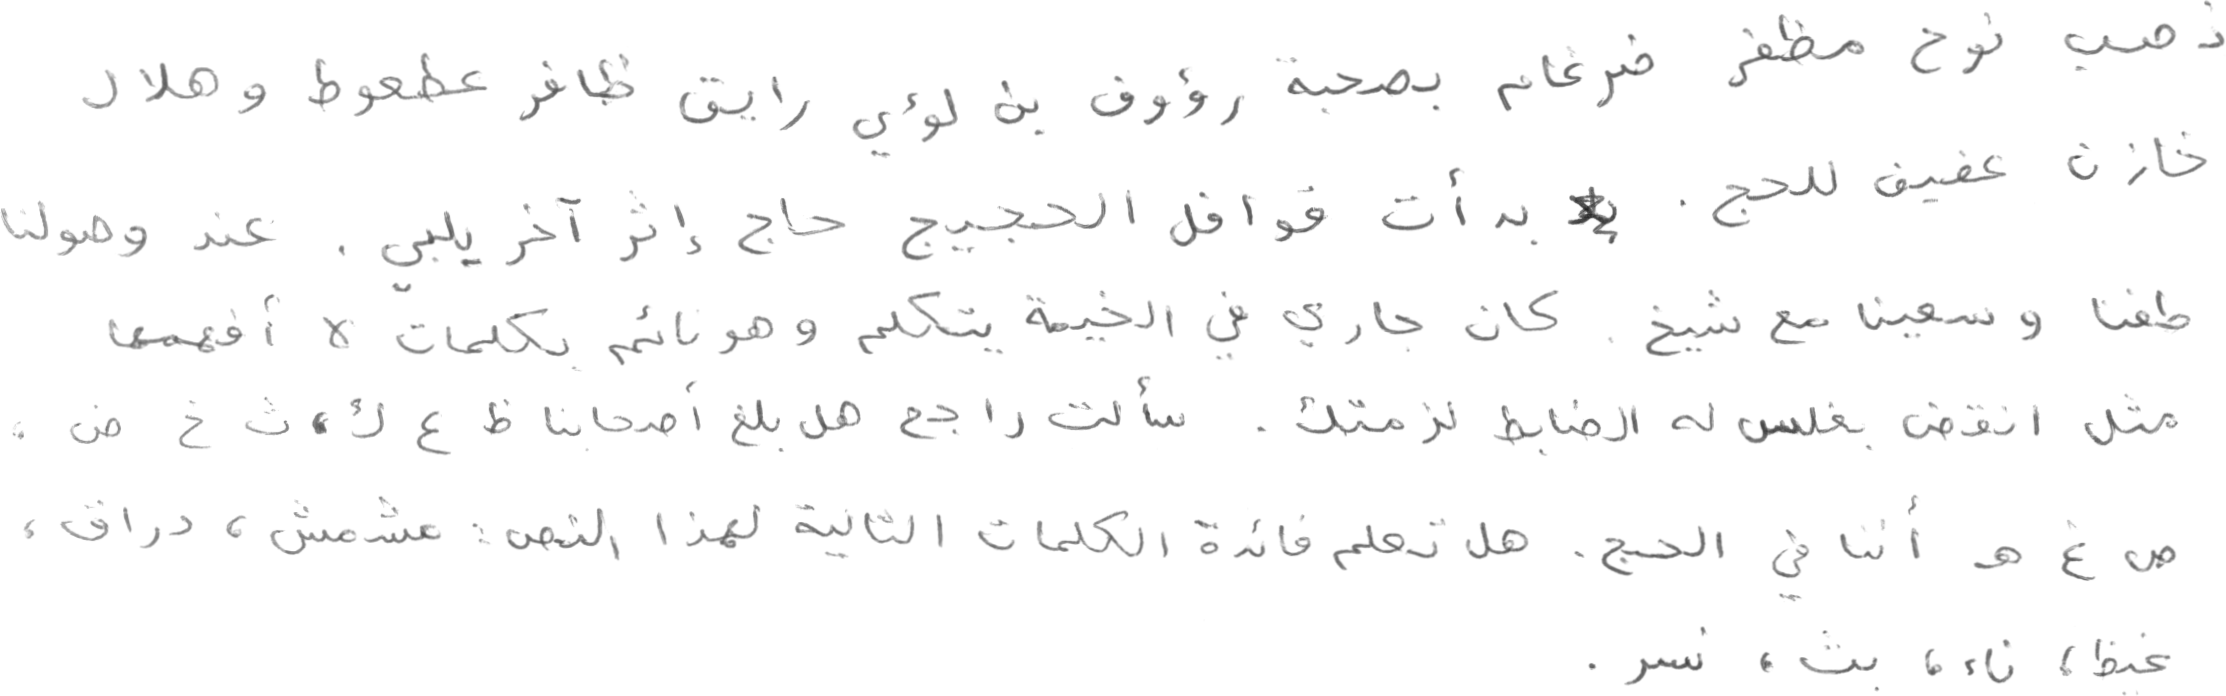 ذهب نوح مظفر ضرغام بصحبة رؤوف بن لؤي رايق ظافر عطعوط وهلال
خازن عفيف للحج. بدأت قوافل الحجيج حاج إثر آخر يلبي. عند وصولنا
طفنا وسعينا مع شيخ. كان جاري في الخيمة يتكلم وهو نائم بكلمات لا أفهمها
مثل انقض بغلس له الضابط لزمتك. سألت راجح هل بلغ أصحابنا ظ ع ك، ث خ ض،
ص غ هـ أننا في الحج. هل تعلم فائدة الكلمات التالية لهذا النص: مشمش، دراق،
غيظ، ناء، بث، نسر.